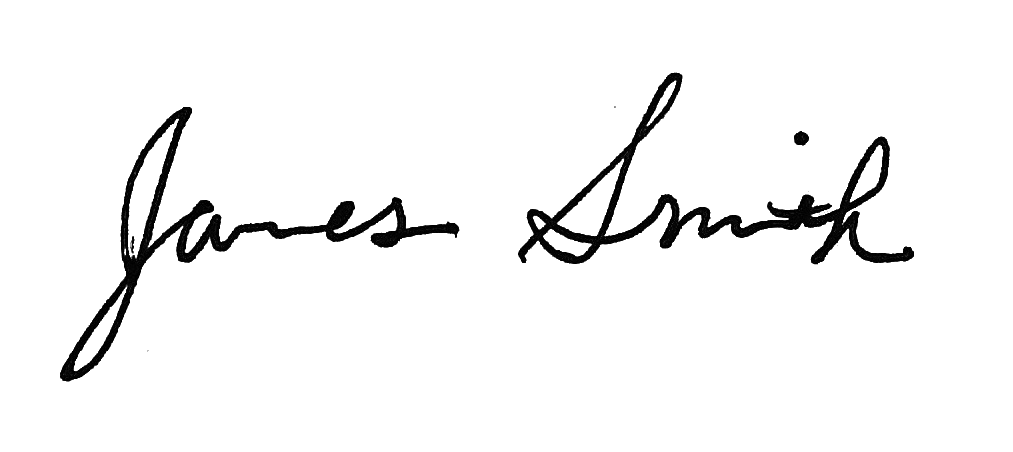 James Smith